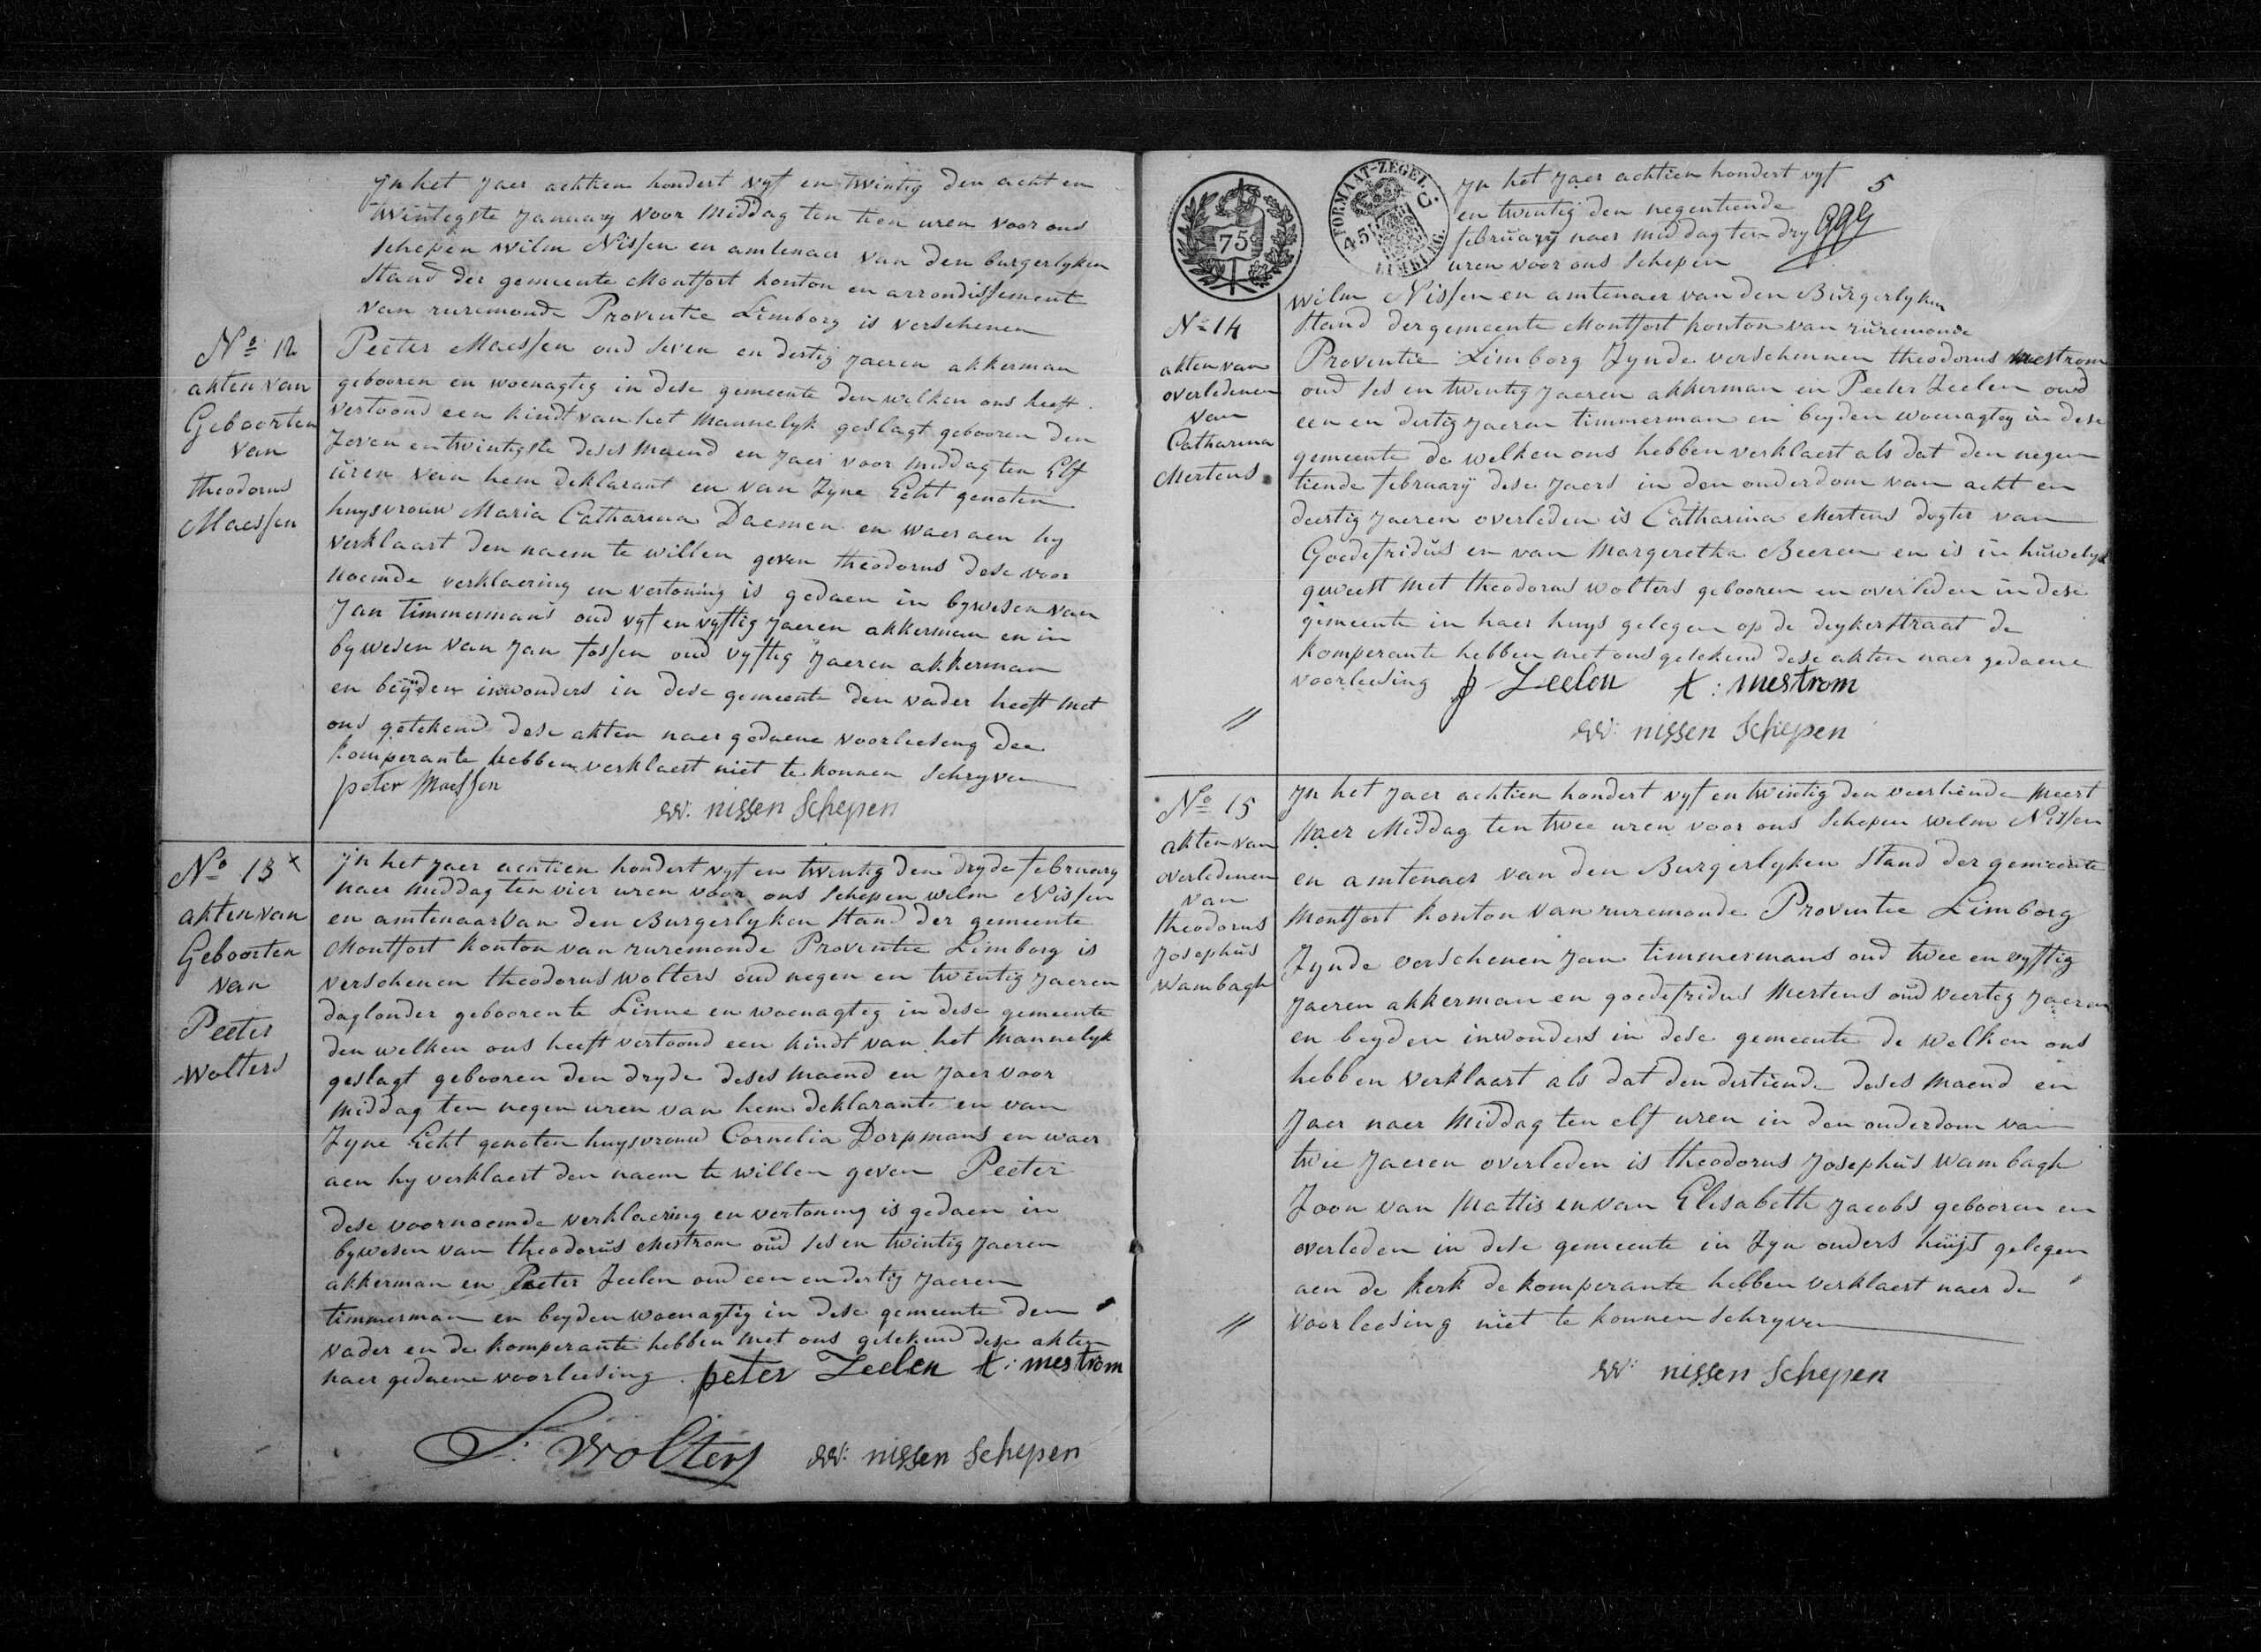 Jn het Jaer achtien hondert vyf en twintig den acht en
twintegste January voor middag ten tien uren voor ons
schepen wilm Nissen en amtenaer van den burgerlyken
stand der gemeente Montfort konton en arrondissement
van ruremonde Proventie Limborg is verschenen
No 12
akten van
Geboorten
van
theodorus
Maessen
Peeter Maessen oud seven en dertig Jaeren akkerman
gebooren en woenagteg in dese gemeente den welken ons heeft
vertoond een kindt van het mannelyk geslagt gebooren den
Zeven en twintigste deses maend en Jaer voor middag ten Elf
uren van hem deklarant en van Zyne Echt genoten
huysvrouw Maria Catharina Daemen en waer aen hy
verklaart den naem te willen geven theodorus dese voor
noemde verklaering en vertoning is gedaen in bywesen van
Jan timmermans oud vyf en vyftig Jaeren akkerman en in
bywesen van Jan fossen oud vyftig Jaeren akkerman
en beyden inwonders in dese gemeente den vader heeft met
ons getekend dese akten naer gedaene voorleeseng dee
komperante hebben verklaert niet te konnen schryven
peter Maessen
W: nissen Schepen
No 13 x
akten van
Geboorten
van
Peeter
Wolters
Jn het Jaer achtien hondert vyf en twintig den dryde february
naer middag ten vier uren voor ons schepen wilm Nissen
en amtenaar van den Burgerlyken stand der gemeente
Montfort konton van ruremonde Proventie Limborg is
verschenen theodorus wolters oud negen en twintig Jaeren
daglonder gebooren te Linne en woenagteg in dese gemeente
den welken ons heeft vertoond een kindt van het mannelyk
geslagt gebooren den dryde deses maend en Jaer voor
middag ten negen uren van hem deklarante en van
Zyne Echt genoten huysvrouw Cornelia Dorpmans en waer
aen hy verklaert den naem te willen geven Peeter
dese voornoemde verklaering en vertoning is gedaen in
bywesen van theodorus Mestrom oud ses en twintig Jaeren
akkerman en Peeter Zeelen oud een en dertig Jaeren
timmerman en beyden woenagtig in dese gemeente den
vader en de komperante hebben met ons getekend dese akten
naer gedaene voorleesing peter Zeelen t: mestrom
T: Wolters W: nissen Schepen
75
FORMAAT-ZEGEL
45 C.
LIMBURG.
5
Jn het Jaer achtien hondert vyf
en twintig den negentiende
february naer middag ten dry
uren voor ons schepen
wilm Nissen en amtenaer van den Burgerlyken
No 14
akten van
overledenen
van
Catharina
Mertens
stand der gemeente Montfort konton van ruremonde
Proventie Limborg Zynde verschennen theodorus mestrom
oud ses en twintig Jaeren akkerman en Peeter Zeelen oud
een en dertig Jaeren timmerman en beyden woenagteg in dese
gemeente de welken ons hebben verklaert als dat den negen
tiende february dese Jaers in den onderdom van acht en
deertig Jaeren overleden is Catharina Mertens dogter van
Goedefridus en van Margeretha Beeren en is in huwelyk
geweest met theodorus wolters gebooren en overleden in dese
gemeente in haer huys gelegen op de deykerstraat de
komperante hebben met ons getekend dese akten naer gedaene
voorleesing p Zeelen t: mestrom
W: nissen Schepen
No 15
akten van
overledenen
van
theodorus
Josephus
Wambagh
Jn het Jaer achtien hondert vyf en twintig den veertiende meert
naer Middag ten twee uren voor ons schepen welm Nissen
en amtenaer van den Burgerlyken stand der gemeente
Montfort konton van ruremonde Proventie Limborg
Zynde verschenen Jan timmermans oud twee en vyftig
Jaeren akkerman en goedefridus Mertens oud veerteg Jaeren
en beyden inwonders in dese gemeente de welken ons
hebben verklaart als dat den dertiende deses maend en
Jaer naer middag ten elf uren in den onderdom van
twee Jaeren overleden is theodorus Josephus Wambagh
Zoon van Mattis en van Elisabeth Jacobs gebooren en
overleden in dese gemeente in Zyn onders huijs gelegen
aen de kerk de komperante hebben verklaert naer de
voorleesing niet te konnen schryven
W: nissen Schepen